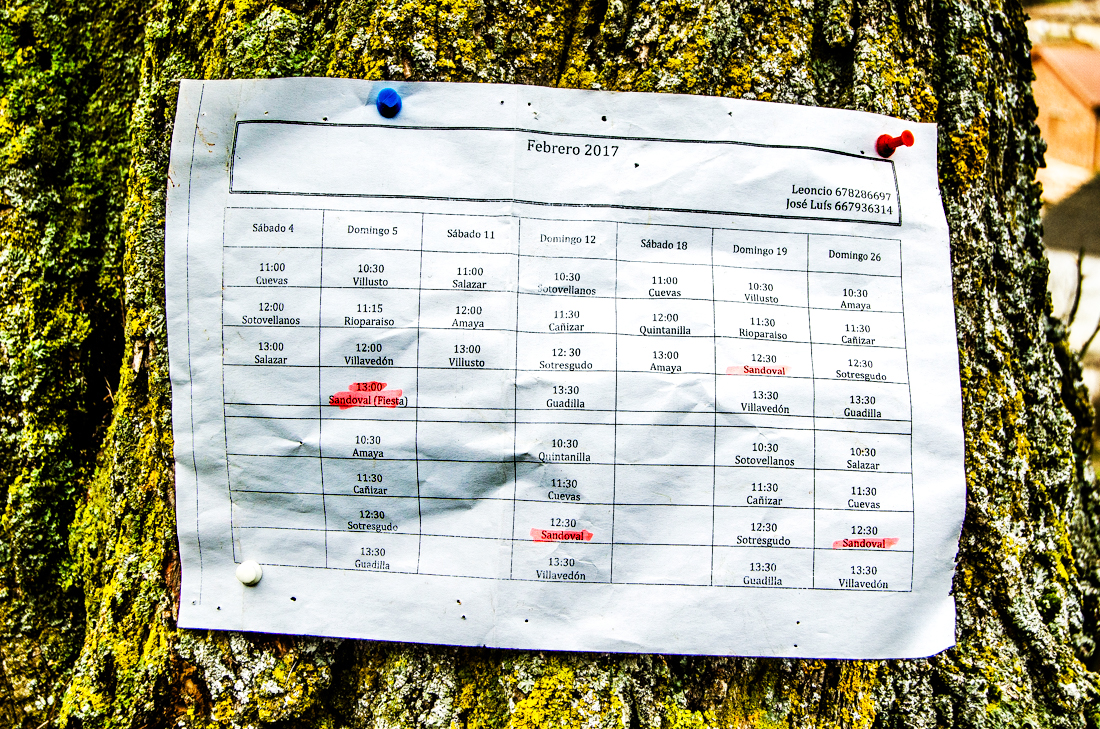 Febrero 2017
Leoncio 678286697
José Luís 667936314
Sábado 4 Domingo 5 Sábado 11 Domingo 12 Sábado 18 Domingo 19 Domingo 26
11:00 10:30 11:00 10:30 11:00 10:30 10:30
Cuevas Villusto Salazar Sotovellanos Cuevas Villusto Amaya
12:00 11:15 12:00 11:30 12:00 11:30 11:30
Sotovellanos Rioparaiso Amaya Cañizar Quintanilla Rioparaiso Cañizar
13:00 12:00 13:00 12:30 13:00 12:30 12:30
Salazar Villavedón Villusto Sotresgudo Amaya Sandoval Sotresgudo
13:00 13:30 13:30 13:30
Sandoval (Fiesta) Guadilla Villavedón Guadilla
10:30 10:30 10:30 10:30
Amaya Quintanilla Sotovellanos Salazar
11:30 11:30 11:30 11:30
Cañizar Cuevas Cañizar Cuevas
12:30 12:30 12:30 12:30
Sotresgudo Sandoval Sotresgudo Sandoval
13:30 13:30 13:30 13:30
Guadilla Villavedón Guadilla Villavedón